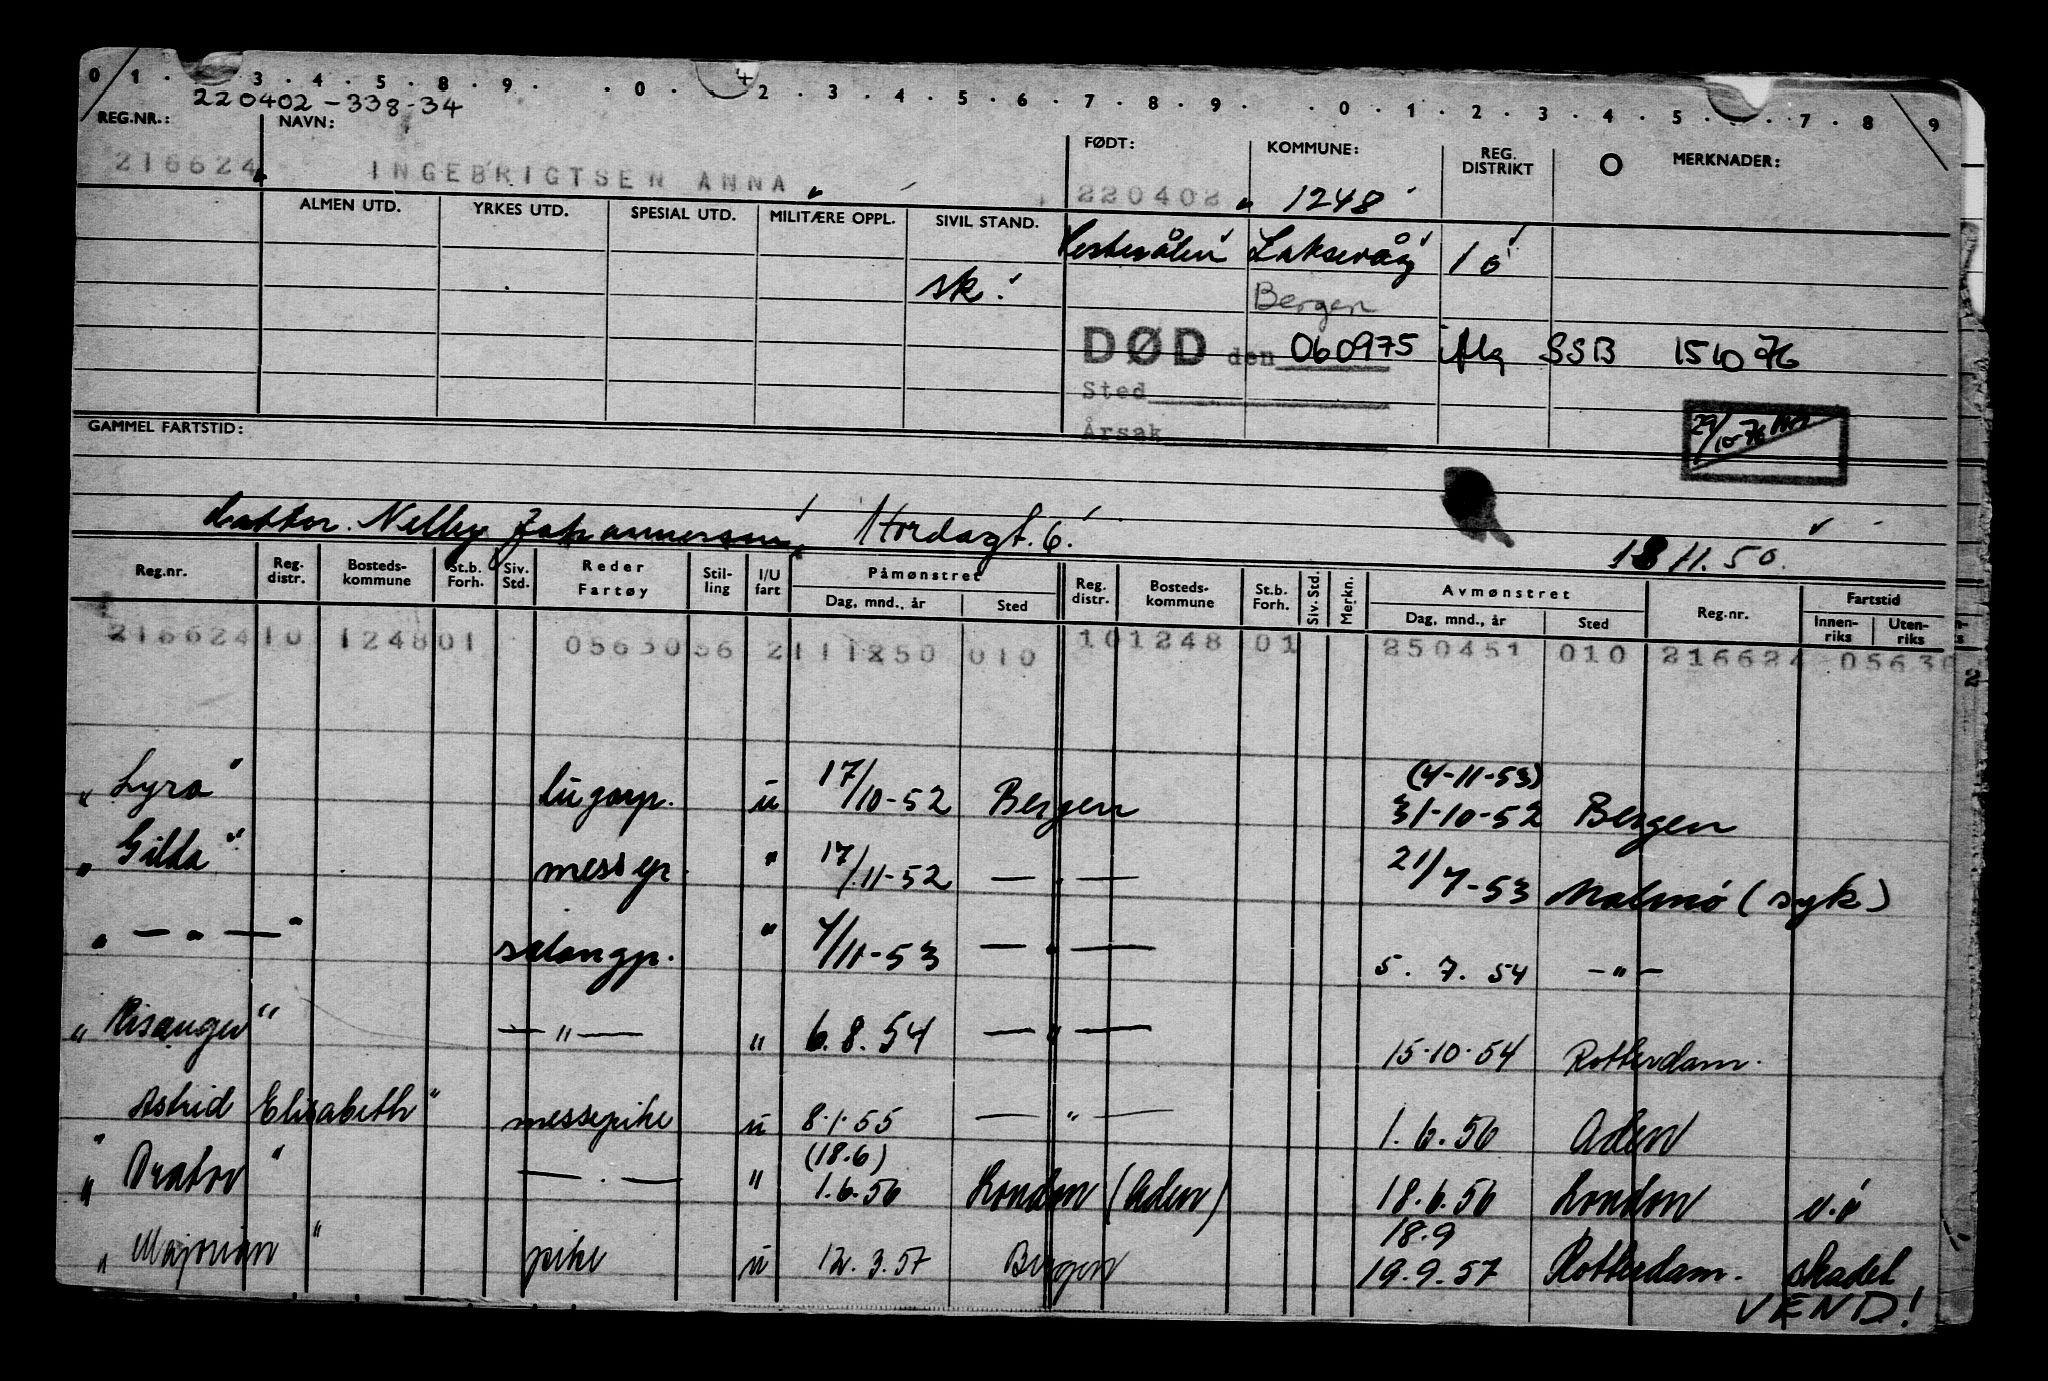 0 1 . 3 . 4 . 5 . 8 . 9 . . 0 . 4 2 . 3 . 4 . 5 . 6 . 7 . 8 . 9 . . 0 . 1 . 2 . 3 . 4 . 5 . . 7 . 8 9
220402-338-34
REG.NR.: NAVN: FØDT: KOMMUNE: REG. DISTRIKT O MERKNADER:
216624 INGEBRIGTSEN ANNA 220402 1248
ALMEN UTD. YRKES UTD. SPESIAL UTD. MILITÆRE OPPL. SIVIL STAND.
Laksevåg 10
sk. Bergen
DØD den 060975 iflg SSB 151076
Sted
Årsak
29/10-76
GAMMEL FARTSTID:
dattor. Nelly Johannersen, Hordagt. 6.
18 11.50.
Reg.nr. Reg. distr. Bosteds- kommune St.b. Forh. Siv. Std. Reder Fartøy Stil- ling I/U fart Påmønstret Dag, mnd., år Sted Reg. distr. Bosteds- kommune St.b. Forh. Siv. Std. Merkn. Avmønstret Dag, mnd., år Sted Reg.nr. Fartstid Innen- riks Uten- riks
216624 10 1248 01 05630 56 2 111250 010 10 1248 01 250451 010 216624 05630 2
(4-11-53)
"Lyra" lugarp. u 17/10-52 Bergen 31-10-52 Bergen
"Gilda" messep. " 17/11-52 — " — 21/7-53 Malmø (syk)
" — " — " salongp. " 4/11-53 — " — 5. 7. 54 — " —
"Risanger" — " — " 6.8.54 — " — 15-10-54 Rotterdam.
"Astrid Elisabeth" messepike u 8.1.55 — " — 1.6.56 Aden
(18.6)
"Brabor" — . — " 1.6.56 London (Aden) 18.6.56 London v.ö
18.9
"Majorian" pike u 12.3.57 Bergen 19.9.57 Rotterdam. skadet
VEND!